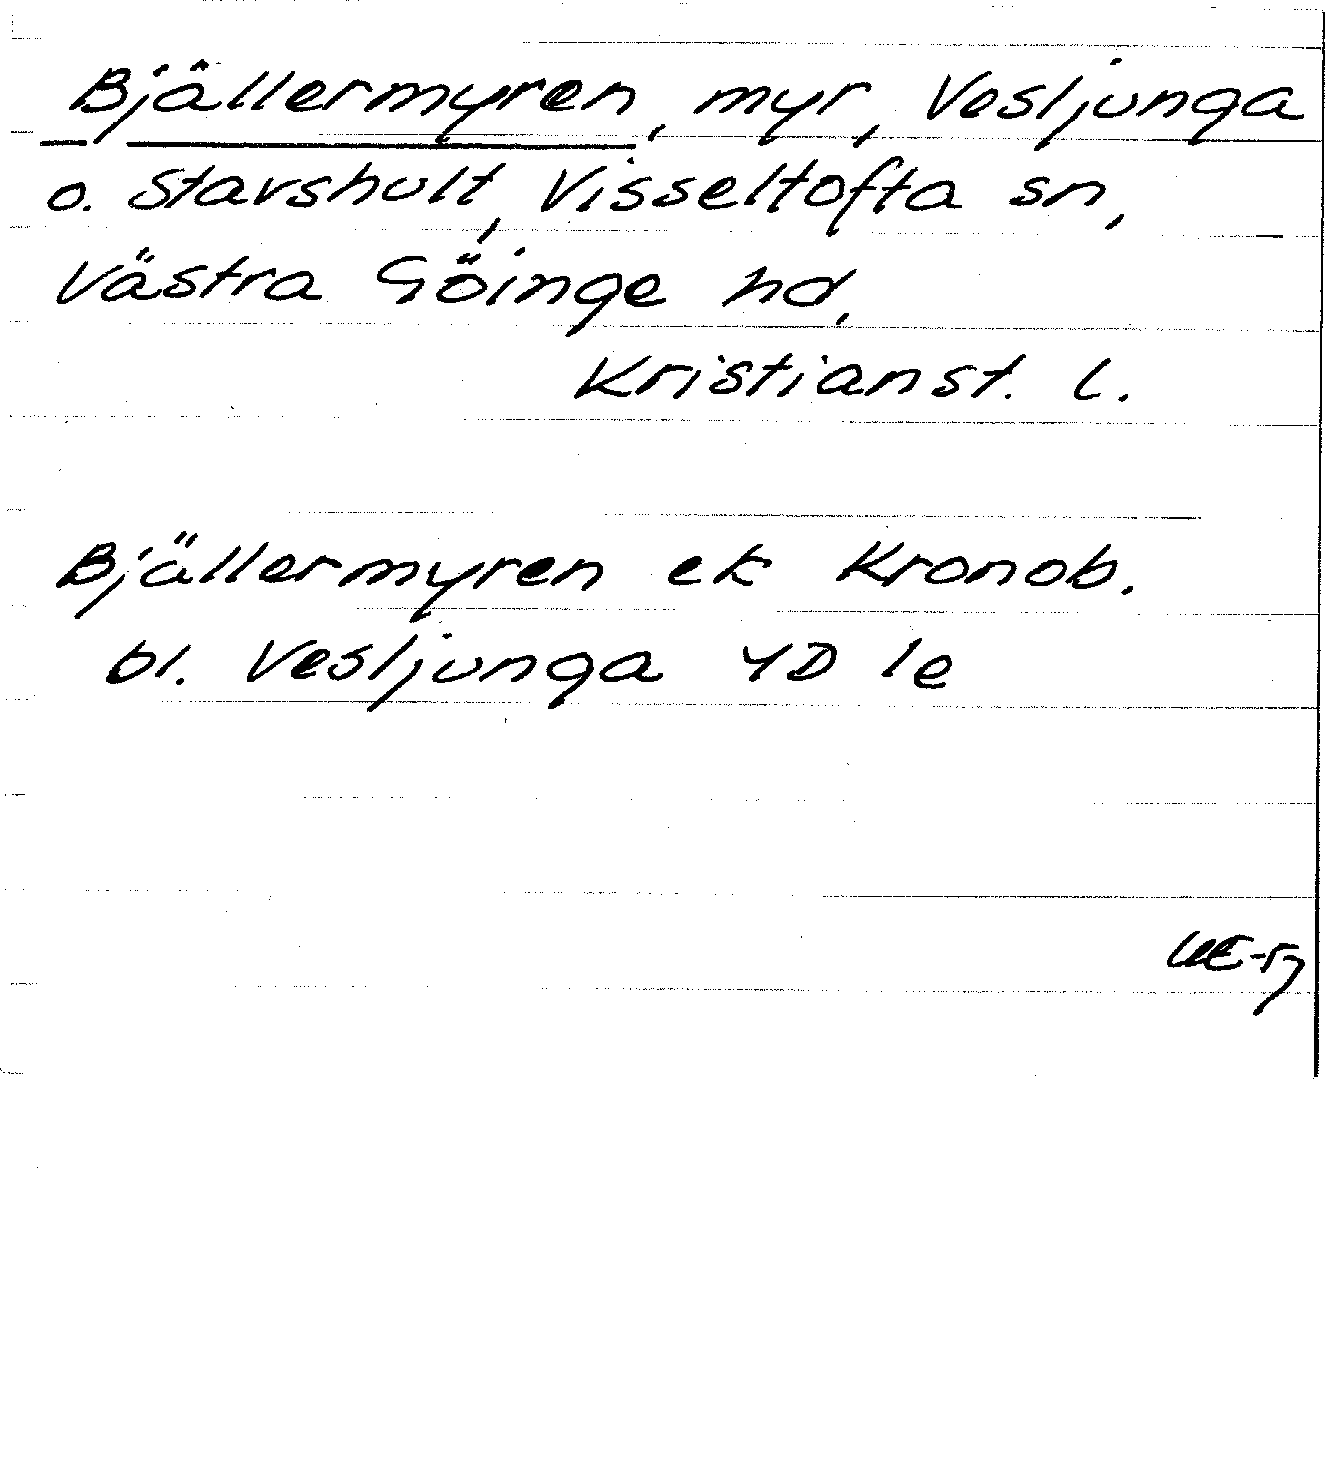 Bjällermyren, myr, Vesljunga
o. Stavshult, Visseltofta sn,
Västra Göinge hd,
Kristianst. l.
Bjällermyren ek Kronob.
bl. Vesljunga 4D 1e